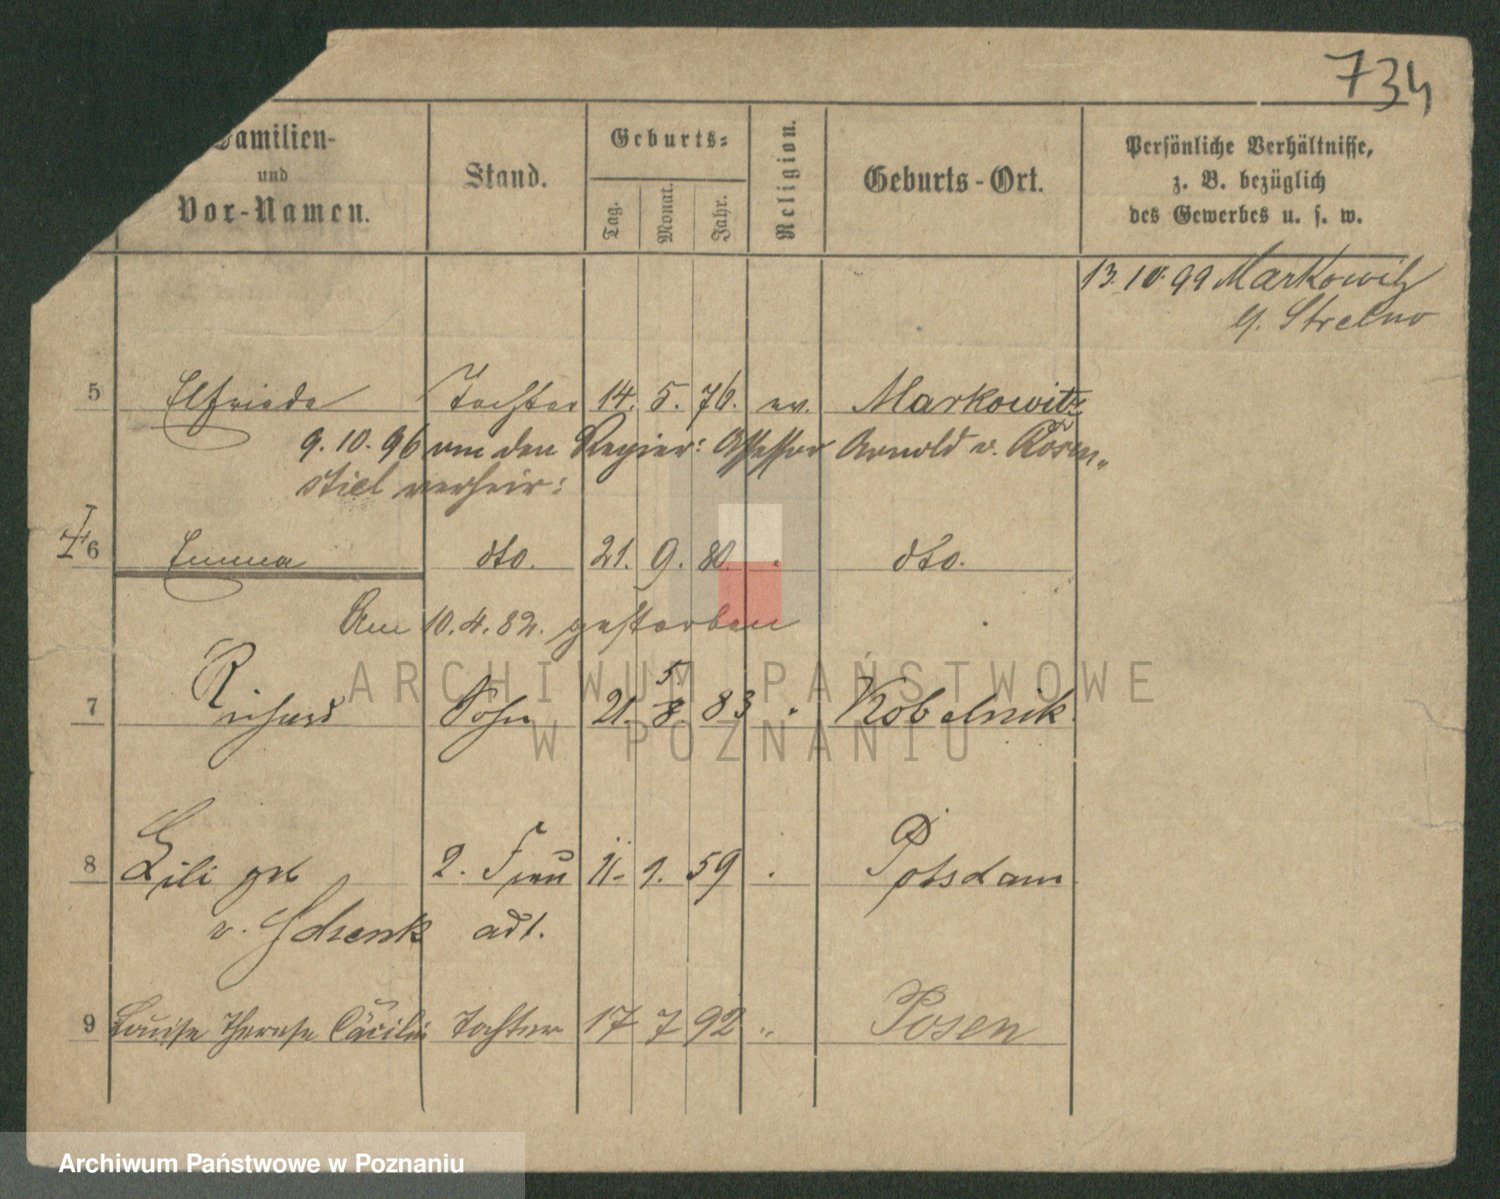 734
Familien-
und
Vor-Namen.
Stand.
Geburts-
Tag.
Monat.
Jahr.
Religion.
Geburts-Ort.
Persönliche Verhältnisse,
z. B. bezüglich
des Gewerbes u. s. w.
13.10.99 Markowitz
Strelno
5 Elfriede Tochter 14. 5. 76. ev. Markowitz
9.10.96 mit den Regier: Assessor Arnold v. Rosen-
stiel verheir:
6 Emma dto. 21. 9. 80. dto.
Am 10.4.82. gestorben
5.
7 Richard Sohn 21. 8. 83 " Kobelnik
8 Lili geb 2. Frau 11. 1. 59 " Potsdam
v. Schenk adl.
9 Louise Therese Cäcilie Tochter 17 7 92 " Posen
ARCHIWUM PAŃSTWOWE
W POZNANIU
Archiwum Państwowe w Poznaniu